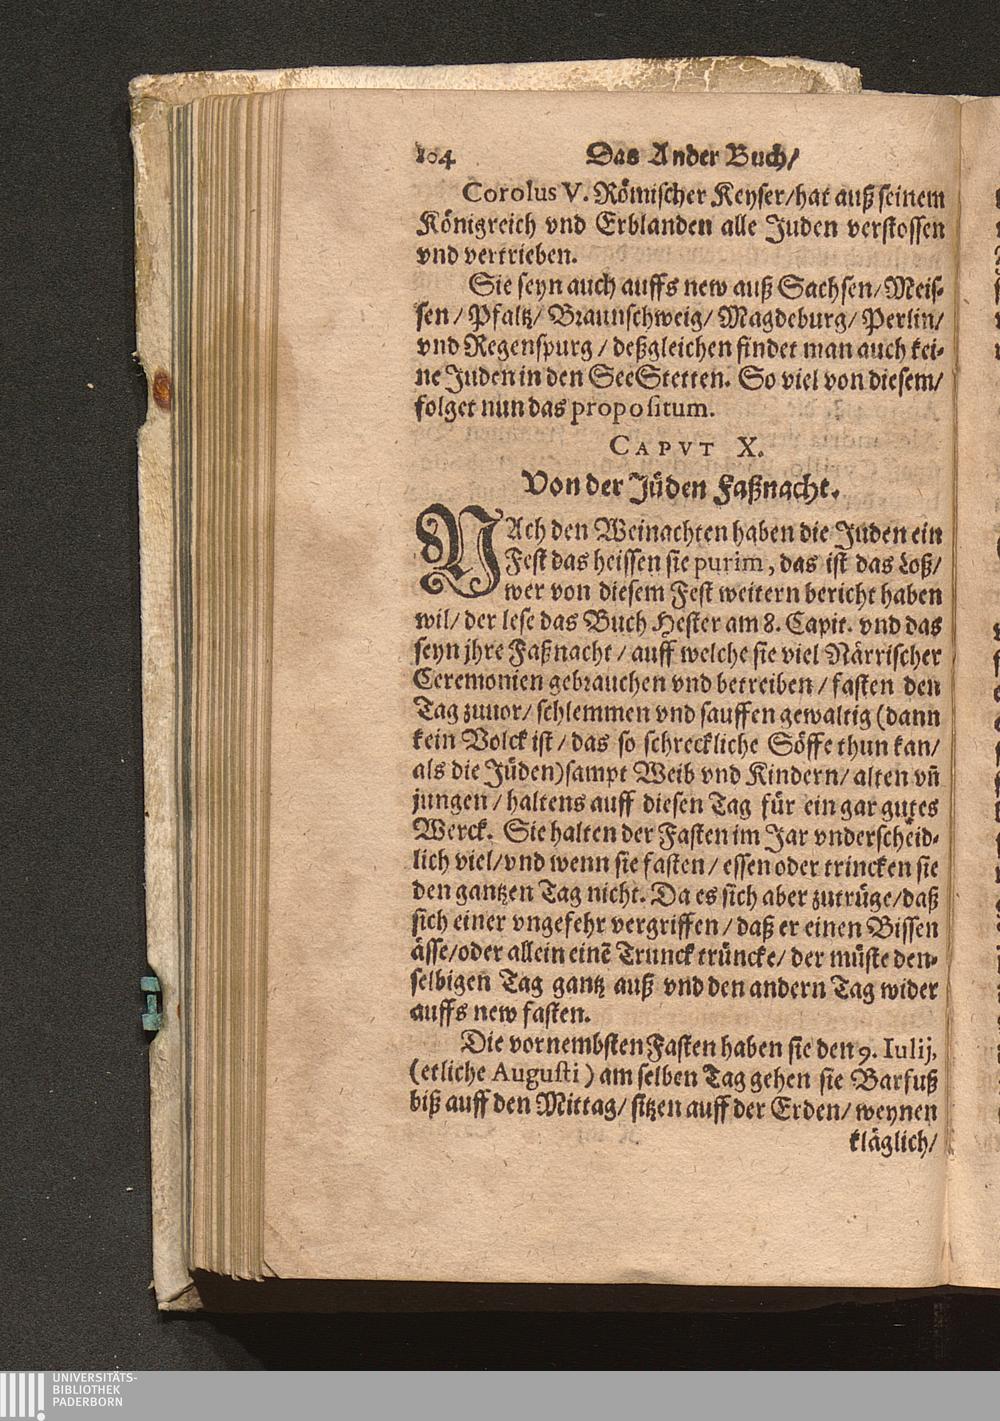 104 Das Ander Buch/
Corolus V. Römischer Keyser/hat auß seinem
Königreich vnd Erblanden alle Juden verstossen
vnd vertrieben.
Sie seyn auch auffs new auß Sachsen/Meis-
sen/ Pfaltz/ Braunschweig/ Magdeburg/ Perlin/
vnd Regenspurg/ deßgleichen findet man auch kei-
ne Juden in den SeeStetten. So viel von diesem/
folget nun das propositum.
CAPVT X.
Von der Jüden Faßnacht.
NAch den Weinachten haben die Juden ein
Fest das heissen sie purim, das ist das Loß/
wer von diesem Fest weitern bericht haben
wil/ der lese das Buch Hester am 8. Capit. vnd das
seyn jhre Faßnacht/ auff welche sie viel Närrischer
Ceremonien gebrauchen vnd betreiben/ fasten den
Tag zuuor/ schlemmen vnd sauffen gewaltig (dann
kein Volck ist/ das so schreckliche Söffe thun kan/
als die Jüden)sampt Weib vnd Kindern/ alten vñ
jungen/ haltens auff diesen Tag für ein gar gutes
Werck. Sie halten der Fasten im Jar vnderscheid-
lich viel/vnd wenn sie fasten/ essen oder trincken sie
den gantzen Tag nicht. Da es sich aber zutrüge/daß
sich einer vngefehr vergriffen/ daß er einen Bissen
ässe/oder allein einẽ Trunck trüncke/ der müste den-
selbigen Tag gantz auß vnd den andern Tag wider
auffs new fasten.
Die vornembsten Fasten haben sie den 9. Iulij,
(etliche Augusti) am selben Tag gehen sie Barfuß
biß auff den Mittag/ sitzen auff der Erden/ weynen
kläglich/
UNIVERSITÄTS-
BIBLIOTHEK
PADERBORN